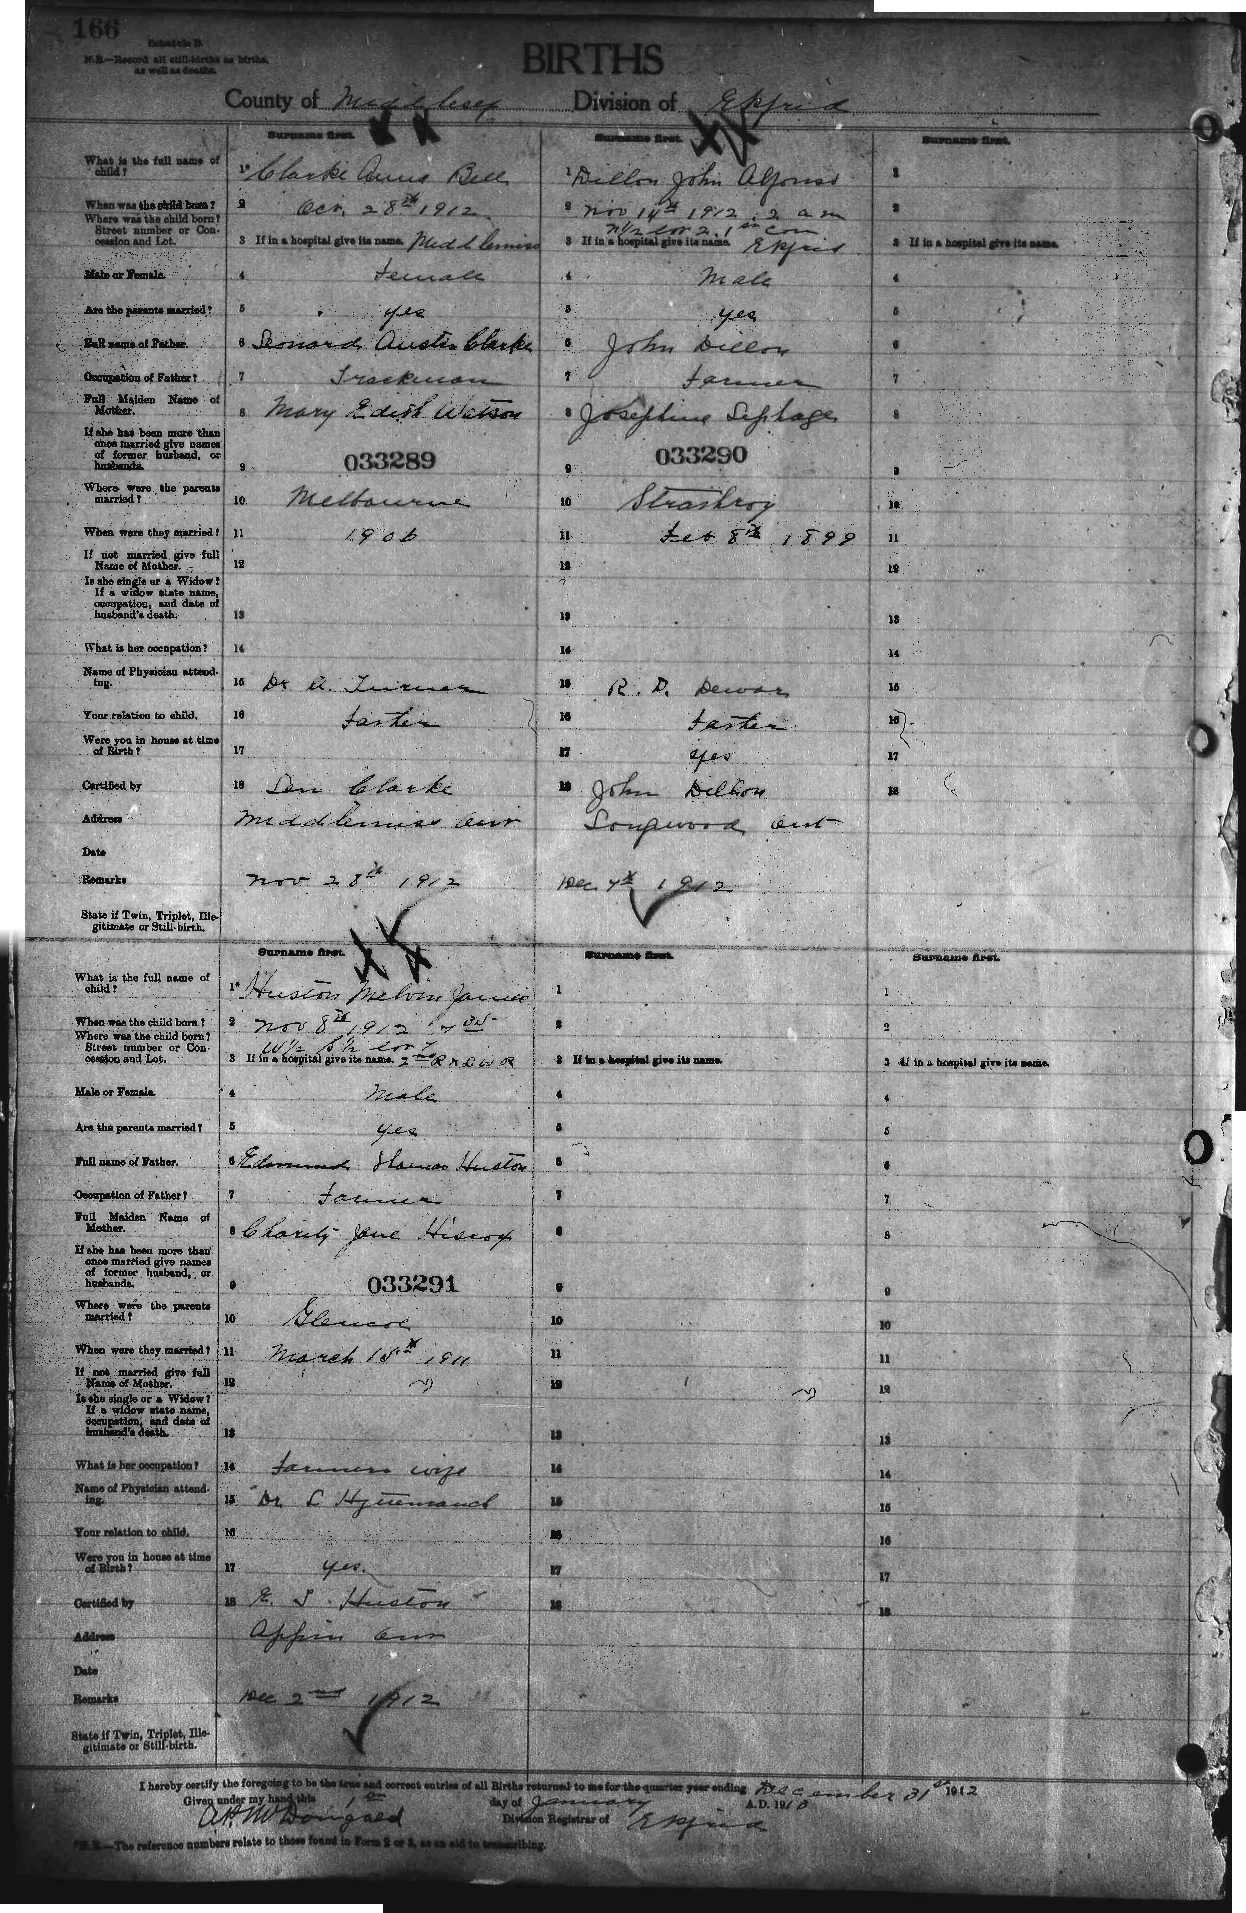 166
Schedule B.
N.B.—Record all still-births as births,
as well as deaths.
BIRTHS
County of Middlesex Division of Ekfrid
Surname first. Surname first. Surname first.
What is the full name of child? 1* Clarke Anna Bell 1 Dillon John Alfonso 1
When was the child born? 2 Oct. 28th 1912 2 Nov 14th 1912 2 a m 2
Where was the child born? Street number or Concession and Lot. 3 If in a hospital give its name. Middlemiss 3 If in a hospital give its name. N 1/2 Lot 2. 1st Con Ekfrid 3 If in a hospital give its name.
Male or Female. 4 Female 4 Male 4
Are the parents married? 5 yes 5 yes 5
Full name of Father. 6 Leonard Austin Clarke 6 John Dillon 6
Occupation of Father? 7 Trackman 7 Farmer 7
Full Maiden Name of Mother. 8 Mary Edith Watson 8 Josephine 8
If she has been more than once married give names of former husband, or husbands. 9 033289 9 033290 9
Where were the parents married? 10 Melbourne 10 Strathroy 10
When were they married? 11 1906 11 Feb 8th 1899 11
If not married give full Name of Mother. 12 12 12
Is she single or a Widow? If a widow state name, occupation, and date of husband's death. 13 13 13
What is her occupation? 14 14 14
Name of Physician attending. 15 Dr A. Turner 15 R. D. Dewar 15
Your relation to child. 16 Father 16 Father 16
Were you in house at time of Birth? 17 17 yes 17
Certified by 18 Len Clarke 18 John Dillon 18
Address Middlemiss Ont Longwood Ont
Date
Remarks Nov 28th 1912 Dec 7th 1912
State if Twin, Triplet, Illegitimate or Still-birth.
Surname first. Surname first. Surname first.
What is the full name of child? 1* Huston Melvin James 1 1
When was the child born? 2 Nov 8th 1912 2 2
Where was the child born? Street number or Concession and Lot. 3 If in a hospital give its name. W 1/2 S 1/2 Lot 7 2nd R N L W R 3 If in a hospital give its name. 3 If in a hospital give its name.
Male or Female. 4 Male 4 4
Are the parents married? 5 yes 5 5
Full name of Father. 6 Edmund Thomas Huston 6 6
Occupation of Father? 7 Farmer 7 7
Full Maiden Name of Mother. 8 Charity Jane Hiscox 8 8
If she has been more than once married give names of former husband, or husbands. 9 033291 9 9
Where were the parents married? 10 Glencoe 10 10
When were they married? 11 March 15th 1911 11 11
If not married give full Name of Mother. 12 12 12
Is she single or a Widow? If a widow state name, occupation, and date of husband's death. 13 13 13
What is her occupation? 14 Farmers wife 14 14
Name of Physician attending. 15 Dr L 15 15
Your relation to child. 16 16 16
Were you in house at time of Birth? 17 yes. 17 17
Certified by 18 E. T. Huston 18 18
Address Appin Ont
Date
Remarks Dec 2nd 1912
State if Twin, Triplet, Illegitimate or Still-birth.
I hereby certify the foregoing to be the true and correct entries of all Births returned to me for the quarter year ending December 31st 1912
Given under my hand this 1st day of January A.D. 191
A. P. McDougald Division Registrar of Ekfrid
*N.B.—The reference numbers relate to those found in Form 2 or 3, as an aid to transcribing.